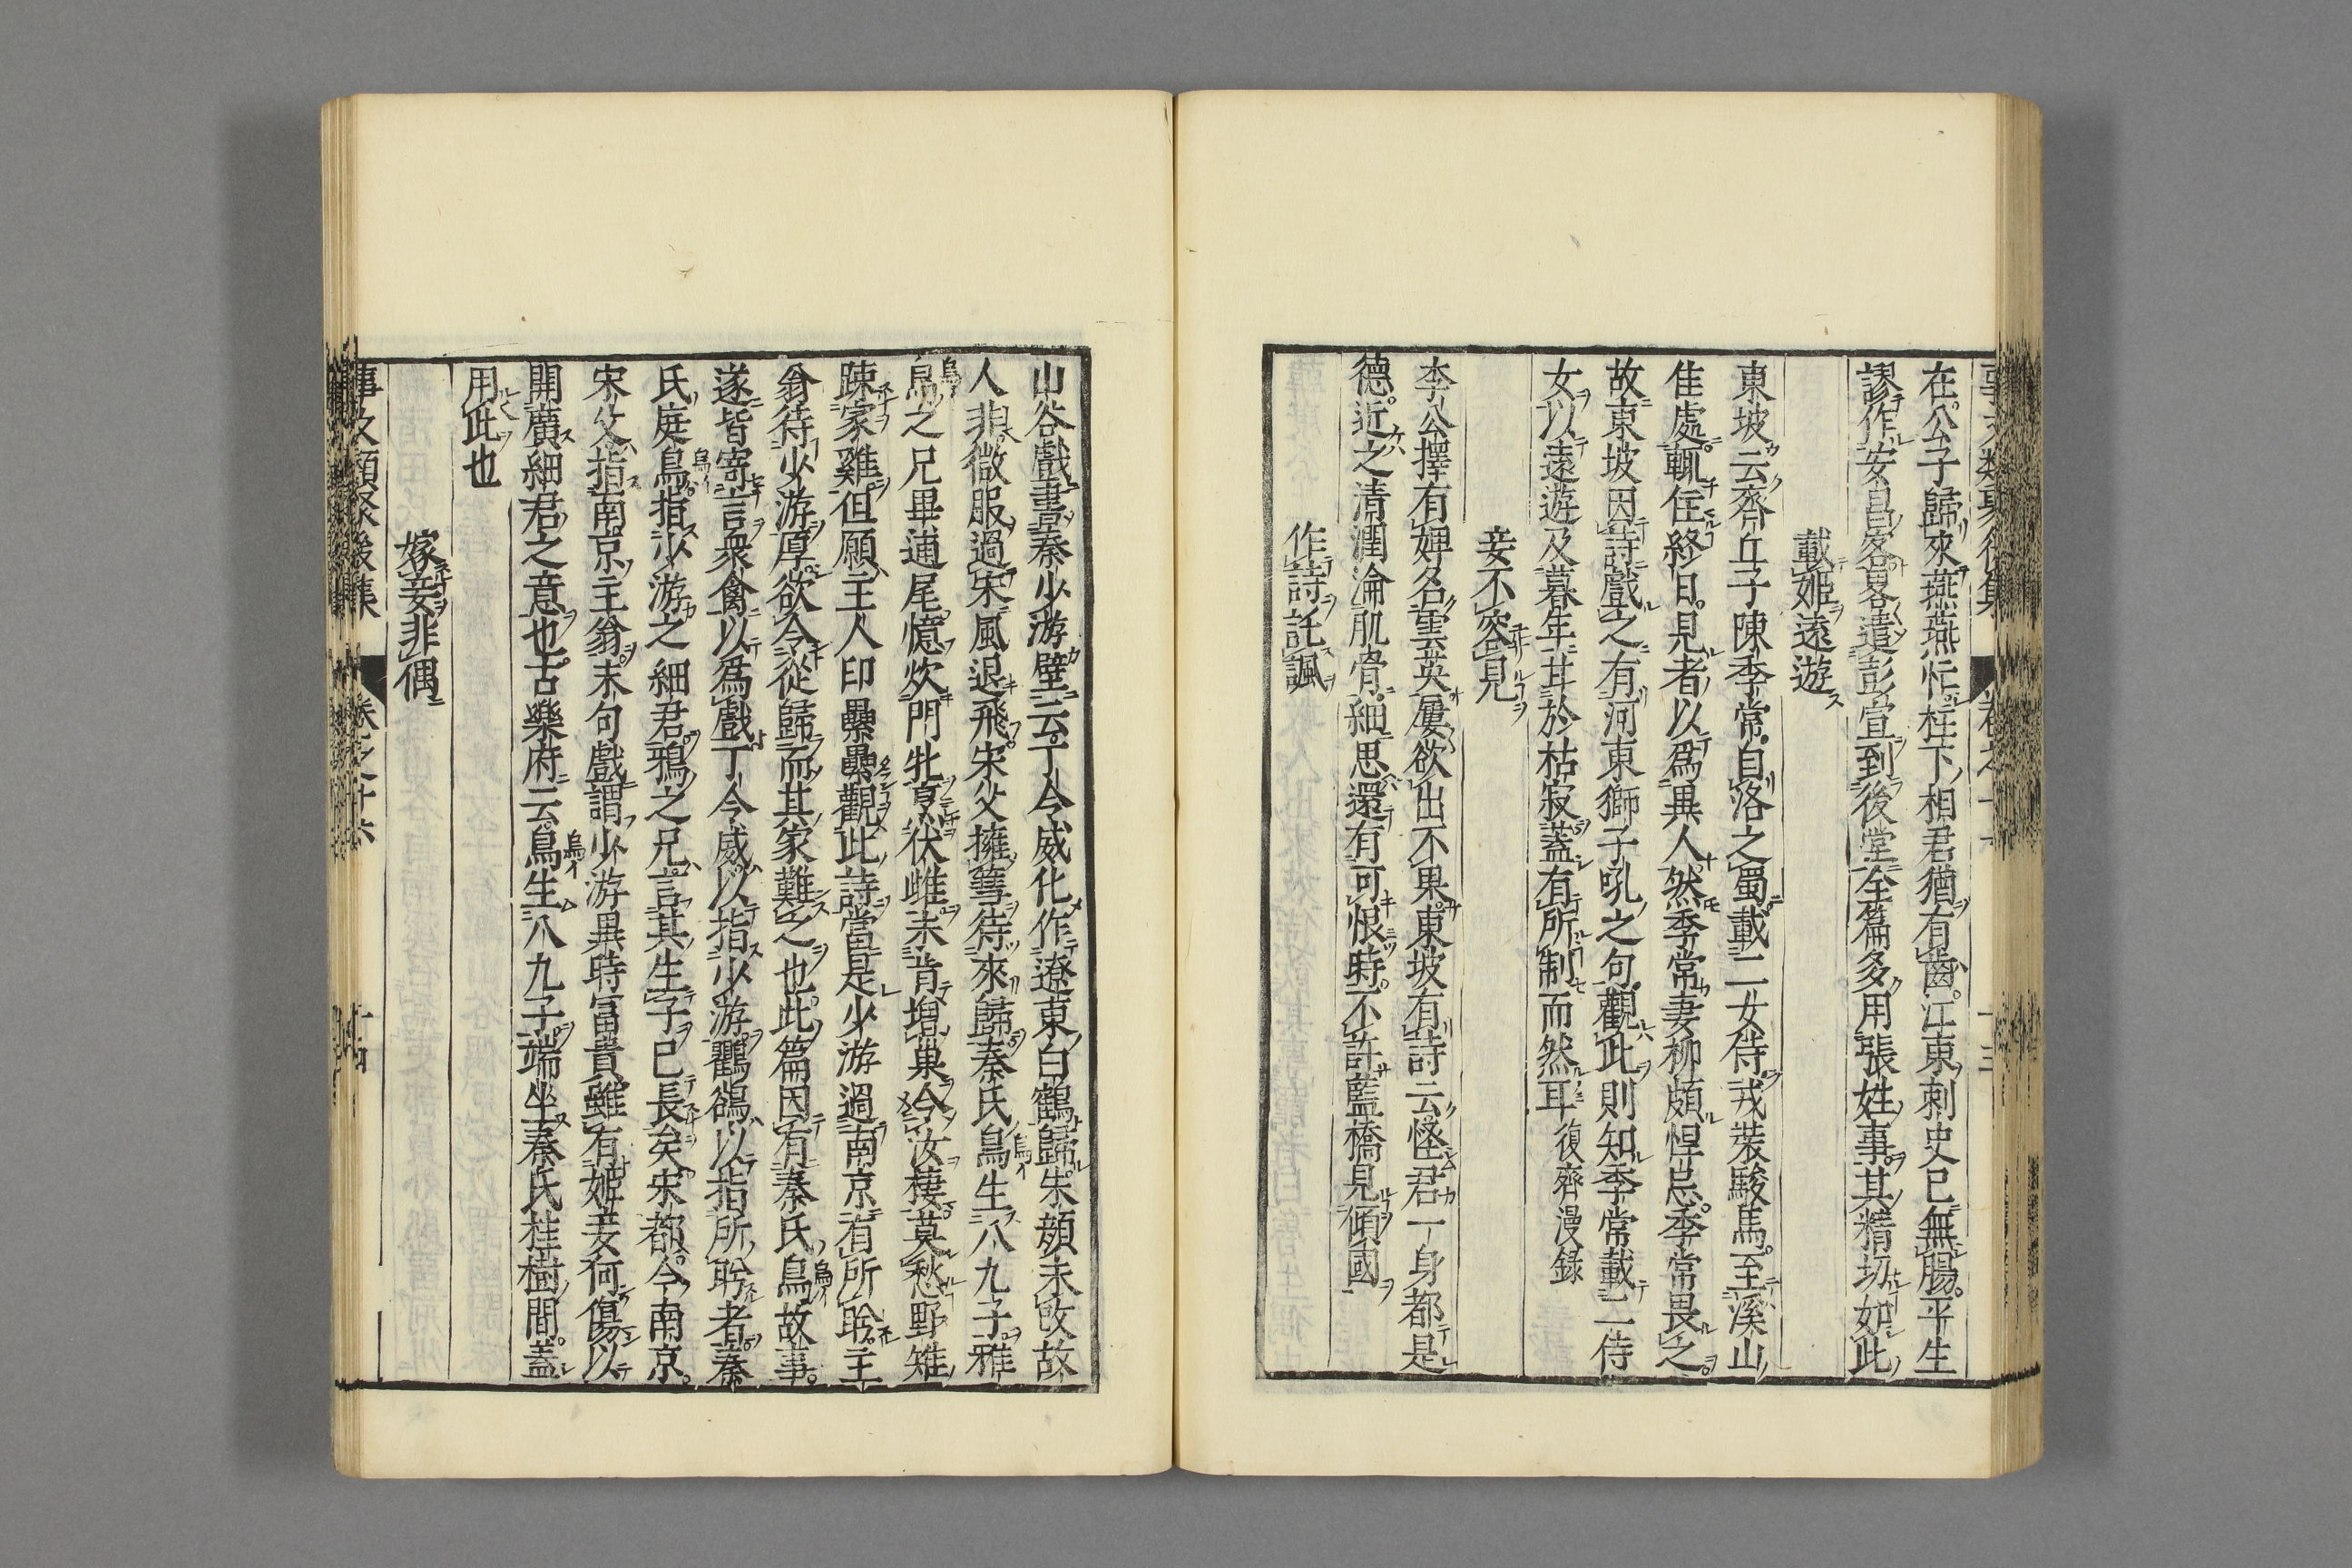 在公子歸來燕燕忙柱下相君猶有齒江東刺史已無腸平生
謬作安昌客畧遣彭宣到後堂全篇多用張姓事其精切如此
載姬遠遊
東坡云齊丘子陳季常自洛之蜀載二女侍戎裝駿馬至溪山
佳處輒住終日見者以爲異人然季常妻柳頗悍忌季常畏之
故東坡因詩戲之有河東獅子吼之句觀此則知季常載二侍
女以遠遊及暮年甘於枯寂蓋有所制而然耳復齊漫錄
妾不容見
李公擇有婢名雲英屢欲出不果東坡有詩云怪君一身都是
德近之清潤淪肌骨細思還有可恨時不許藍橋見傾國
作詩託諷
山谷戲書秦少游壁云丁令威化作遼東白鶴歸朱顏未攺故
人非微服過宋風退飛宋父擁篲待來歸秦氏烏生八九子雅
烏之兄畢逋尾憶炊門牝烹伏雌未肯增巢令汝棲莫愁野雉
踈家雞但願主人印纍纍觀此詩當是少游過南京有所聆主
翁待少游厚欲令從歸而其家難之也此篇因有秦氏烏故事
遂皆寄言衆禽以爲戲丁令威以指少游鸜鵒以指所聆者秦
氏庭烏指少游之細君鴉之兄言其生子已長矣宋都今南京
宋父指南京主翁末句戲謂少游異時富貴雖有姬妾何傷以
開廣細君之意也古樂府云烏生八九子端坐秦氏桂樹間蓋
用此也
嫁妾非偶
事文類聚後集 卷之十六 十四